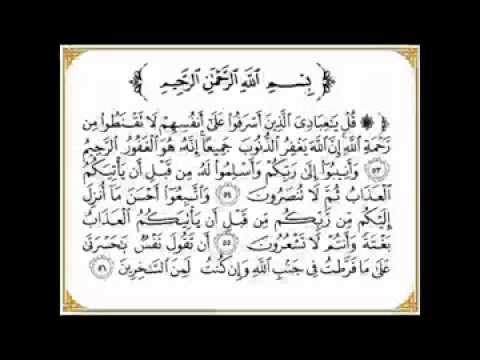 ﴿ بِسْمِ ٱللَّهِ ٱلرَّحْمَٰنِ ٱلرَّحِيمِ ﴾
﴿ ۞ قُلْ يَٰعِبَادِىَ ٱلَّذِينَ أَسْرَفُوا۟ عَلَىٰٓ أَنفُسِهِمْ لَا تَقْنَطُوا۟ مِن
رَّحْمَةِ ٱللَّهِ إِنَّ ٱللَّهَ يَغْفِرُ ٱلذُّنُوبَ جَمِيعًا إِنَّهُۥ هُوَ ٱلْغَفُورُ ٱلرَّحِيمُ
﴿٥٣﴾ وَأَنِيبُوٓا۟ إِلَىٰ رَبِّكُمْ وَأَسْلِمُوا۟ لَهُۥ مِن قَبْلِ أَن يَأْتِيَكُمُ
ٱلْعَذَابُ ثُمَّ لَا تُنصَرُونَ ﴿٥٤﴾ وَٱتَّبِعُوٓا۟ أَحْسَنَ مَآ أُنزِلَ
إِلَيْكُم مِّن رَّبِّكُم مِّن قَبْلِ أَن يَأْتِيَكُمُ ٱلْعَذَابُ
بَغْتَةً وَأَنتُمْ لَا تَشْعُرُونَ ﴿٥٥﴾ أَن تَقُولَ نَفْسٌ يَٰحَسْرَتَىٰ
عَلَىٰ مَا فَرَّطتُ فِى جَنۢبِ ٱللَّهِ وَإِن كُنتُ لَمِنَ ٱلسَّٰخِرِينَ ﴿٥٦﴾